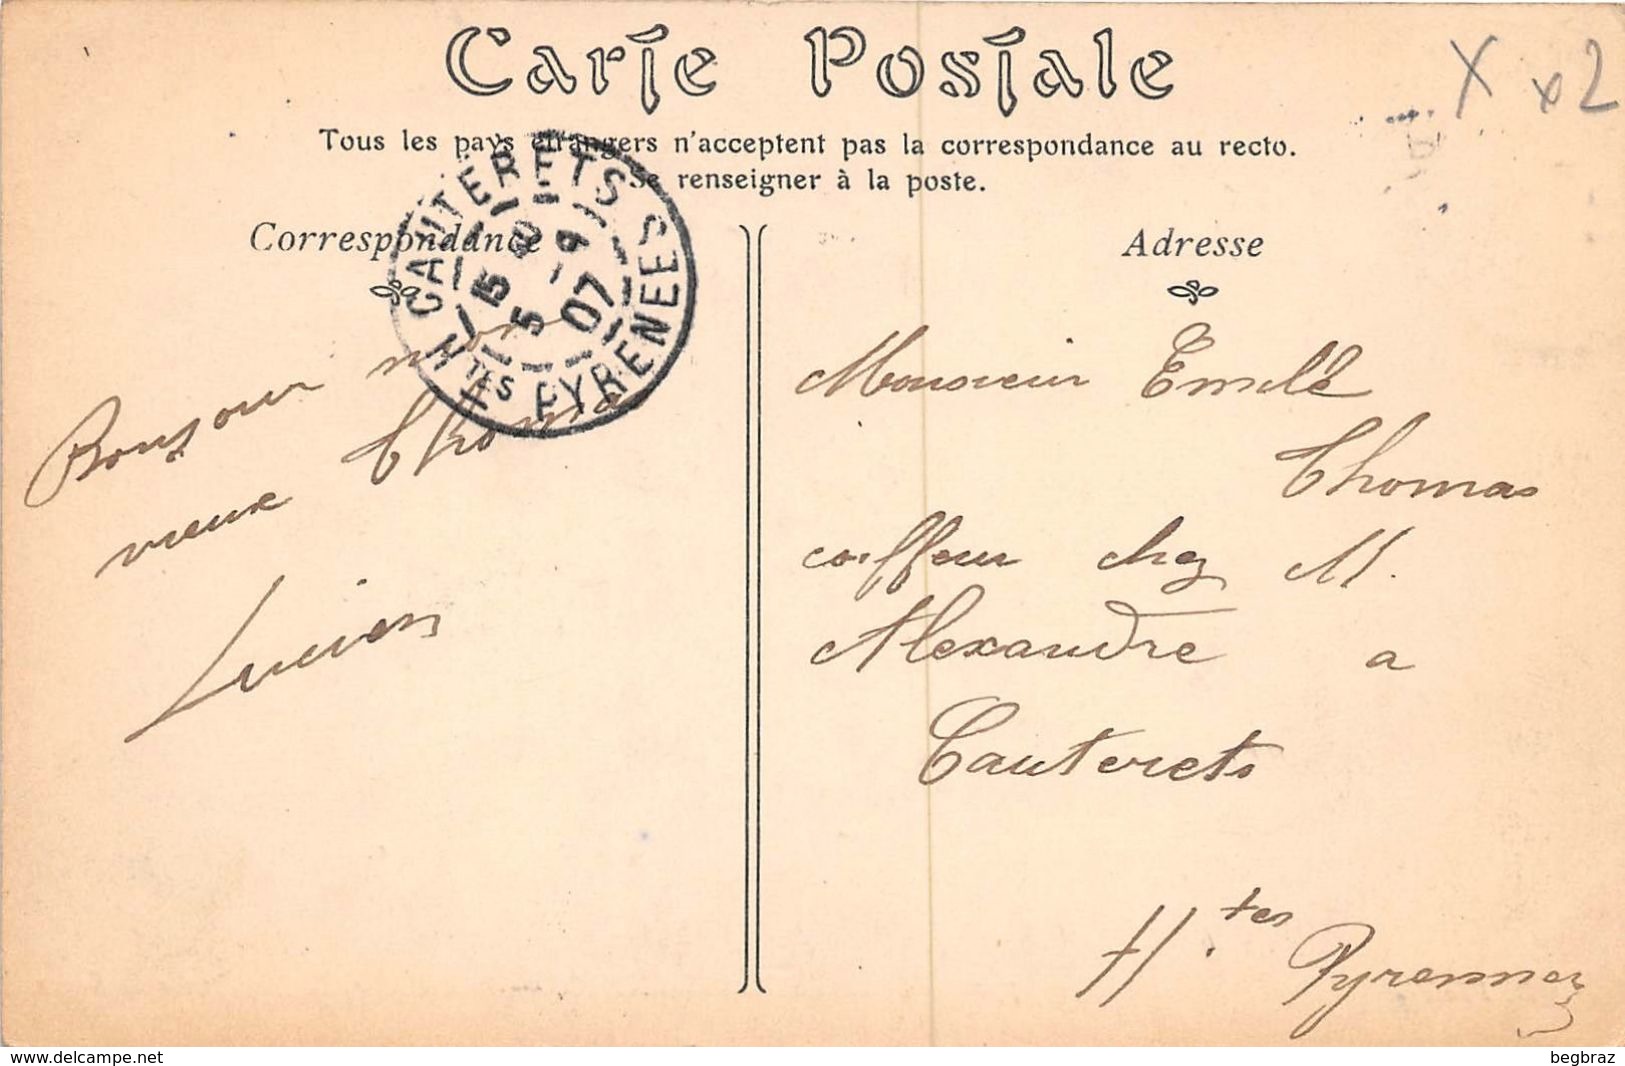 Carte Postale
X x2
Tous les pays étrangers n'acceptent pas la correspondance au recto.
Se renseigner à la poste.
Correspondance
Adresse
CAUTERETS
15
5 - 9
07
HTES PYRENEES
Bonjour mon
vieux Thomas
Lucien
Monsieur Emile
Thomas
coiffeur chez M.
Alexandre a
Cauterets
Htes Pyrennes
www.delcampe.net
begbraz